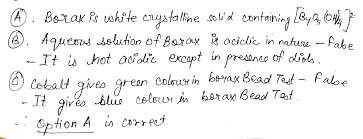 (A). Borax is white crystalline solid containing [B4O5(OH)4]2-
(B). Aqueous solution of Borax is acidic in nature - False
- It is not acidic except in presence of diols.
(C) Cobalt gives green colour in borax Bead Test - False
- It gives blue colour in borax Bead Test.
∴ Option A is correct